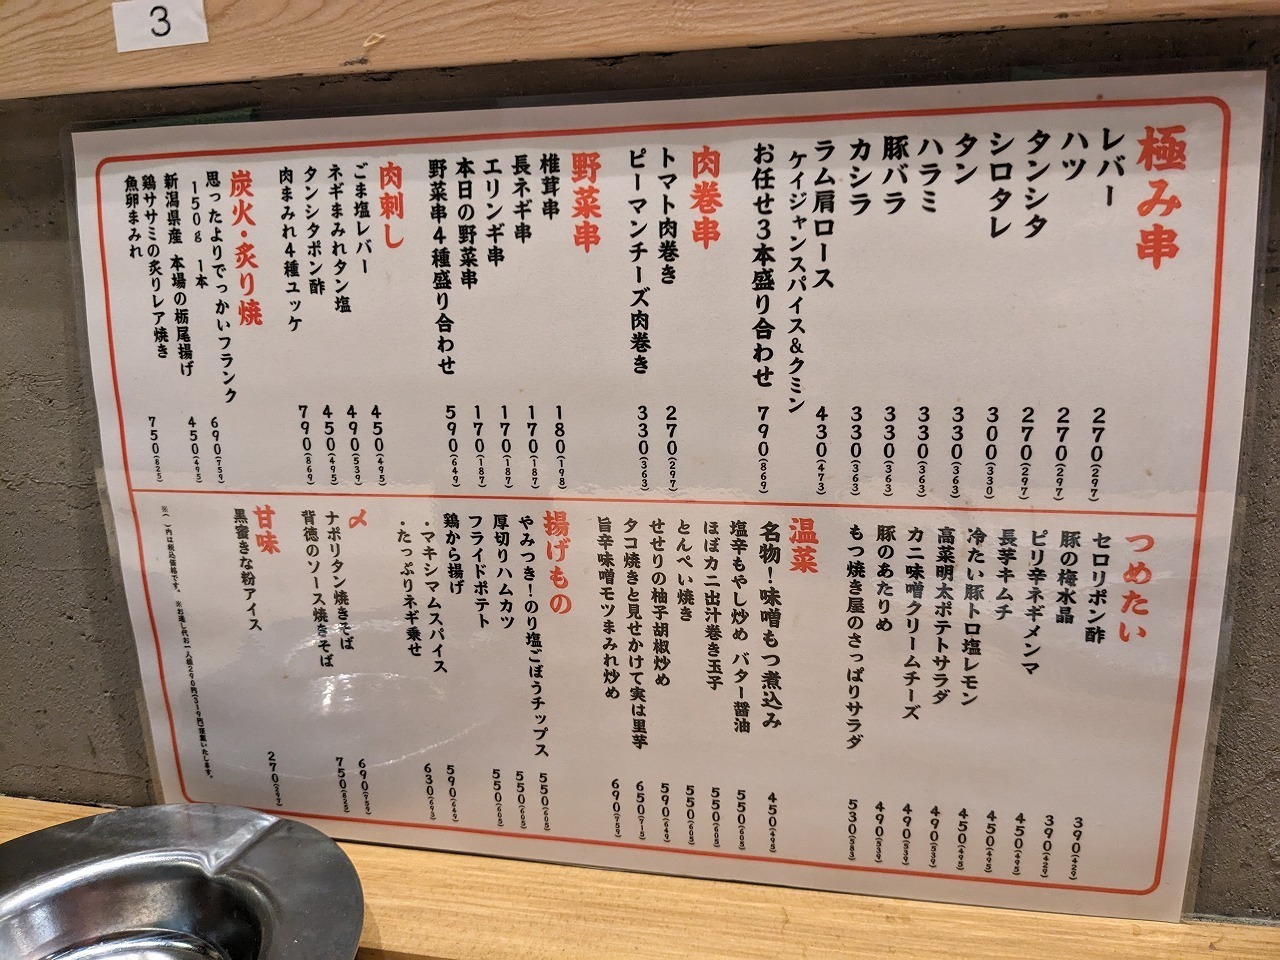 3
極み串
レバー 270(297)
ハツ 270(297)
タンシタ 270(297)
シロタレ 300(330)
タン 330(363)
ハラミ 330(363)
豚バラ 330(363)
カシラ 330(363)
ラム肩ロース 430(473)
ケイジャンスパイス&クミン
お任せ3本盛り合わせ 790(869)
肉巻串
トマト肉巻き 270(297)
ピーマンチーズ肉巻き 330(363)
野菜串
椎茸串 180(198)
長ネギ串 170(187)
エリンギ串 170(187)
本日の野菜串 170(187)
野菜串4種盛り合わせ 590(649)
肉刺し
ごま塩レバー 450(495)
ネギまみれタン塩 490(539)
タンシタポン酢 450(495)
肉まみれ4種ユッケ 790(869)
炭火・炙り焼
思ったよりでっかいフランク 690(759)
150g 1本
新潟県産 本場の栃尾揚げ 450(495)
鶏ササミの炙りレア焼き 750(825)
魚卵まみれ
つめたい
セロリポン酢 390(429)
豚の梅水晶 390(429)
ピリ辛ネギメンマ 450(495)
長芋キムチ 450(495)
冷たい豚トロ塩レモン 450(495)
高菜明太ポテトサラダ 490(539)
カニ味噌クリームチーズ 490(539)
豚のあたりめ 490(539)
もつ焼き屋のさっぱりサラダ 530(583)
温菜
名物!味噌もつ煮込み 450(495)
塩辛もやし炒め バター醤油 550(605)
ほぼカニ出汁巻き玉子 550(605)
とんぺい焼き 550(605)
せせりの柚子胡椒炒め 590(649)
タコ焼きと見せかけて実は里芋 650(715)
旨辛味噌モツまみれ炒め 690(759)
揚げもの
やみつき!のり塩ごぼうチップス 550(605)
厚切りハムカツ 550(605)
フライドポテト 550(605)
鶏から揚げ 590(649)
・マキシマムスパイス 630(693)
・たっぷりネギ乗せ
〆
ナポリタン焼きそば 690(759)
背徳のソース焼きそば 750(825)
甘味
黒蜜きな粉アイス 270(297)
※( )内は税込価格です。 ※お通し代お一人様290円(319円)頂戴いたします。